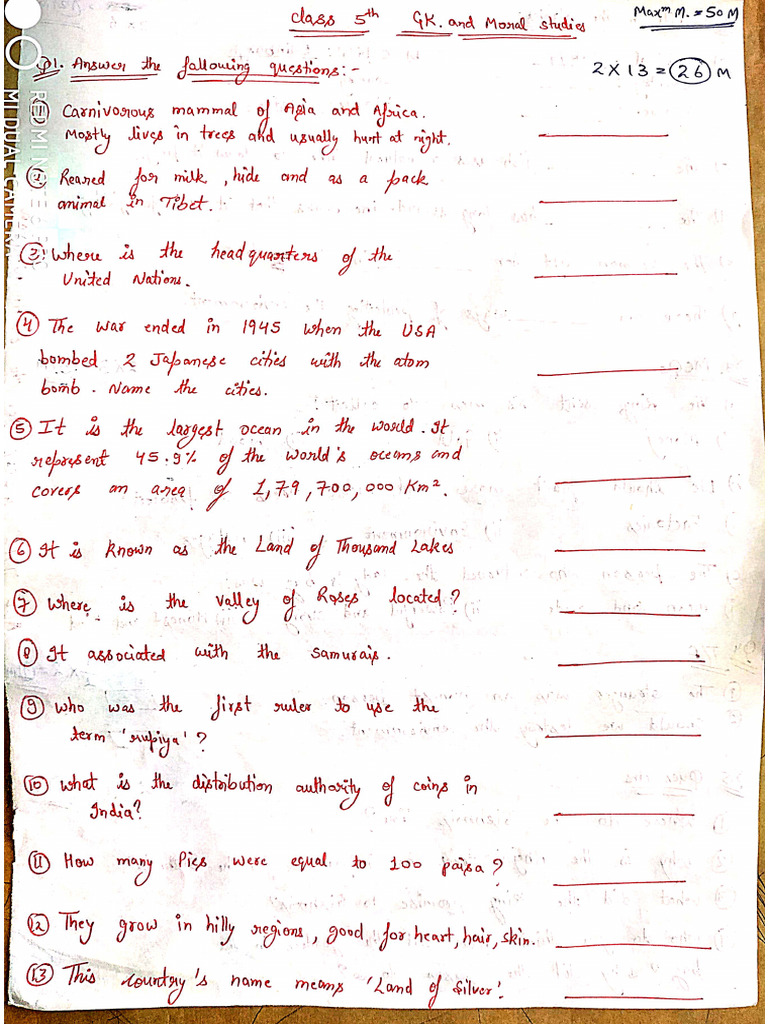 Class 5th GK. and Moral Studies Maxm M. = 50 M
Q1. Answer the following questions:- 2 X 13 = 26 M
① Carnivorous mammal of Asia and Africa.
Mostly lives in trees and usually hunt at night.
② Reared for milk, hide and as a pack
animal in Tibet.
③ Where is the headquarters of the
United Nations.
④ The war ended in 1945 when the USA
bombed 2 Japanese cities with the atom
bomb. Name the cities.
⑤ It is the largest ocean in the world. It
represent 45.9% of the world's oceans and
covers an area of 1,79,700,000 Km².
⑥ It is known as the Land of Thousand Lakes
⑦ Where is the valley of Roses located?
⑧ It associated with the samurais.
⑨ Who was the first ruler to use the
term 'rupiya'?
⑩ What is the distribution authority of coins in
India?
⑪ How many Pies were equal to 100 paisa?
⑫ They grow in hilly regions, good for heart, hair, skin.
⑬ This country's name means 'Land of Silver'.
REDMI NOTE
MI DUAL CAMERA